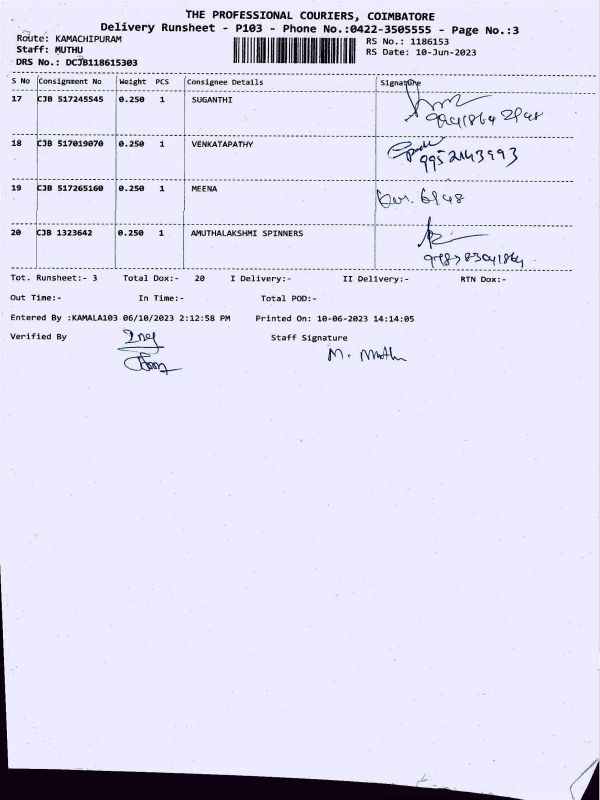 THE PROFESSIONAL COURIERS, COIMBATORE
Delivery Runsheet - P103 - Phone No.:0422-3505555 - Page No.:3
Route: KAMACHIPURAM
RS No.: 1186153
Staff: MUTHU
RS Date: 10-Jun-2023
DRS No.: DCJB118615303
S No Consignment No Weight PCS Consignee Details Signature
17 CJB 517245545 0.250 1 SUGANTHI
18 CJB 517019070 0.250 1 VENKATAPATHY
9952143993
19 CJB 517265160 0.250 1 MEENA
20 CJB 1323642 0.250 1 AMUTHALAKSHMI SPINNERS
Tot. Runsheet:- 3 Total Dox:- 20 I Delivery:- II Delivery:- RTN Dox:-
Out Time:- In Time:- Total POD:-
Entered By :KAMALA103 06/10/2023 2:12:58 PM Printed On: 10-06-2023 14:14:05
Verified By Staff Signature
M. Muthu